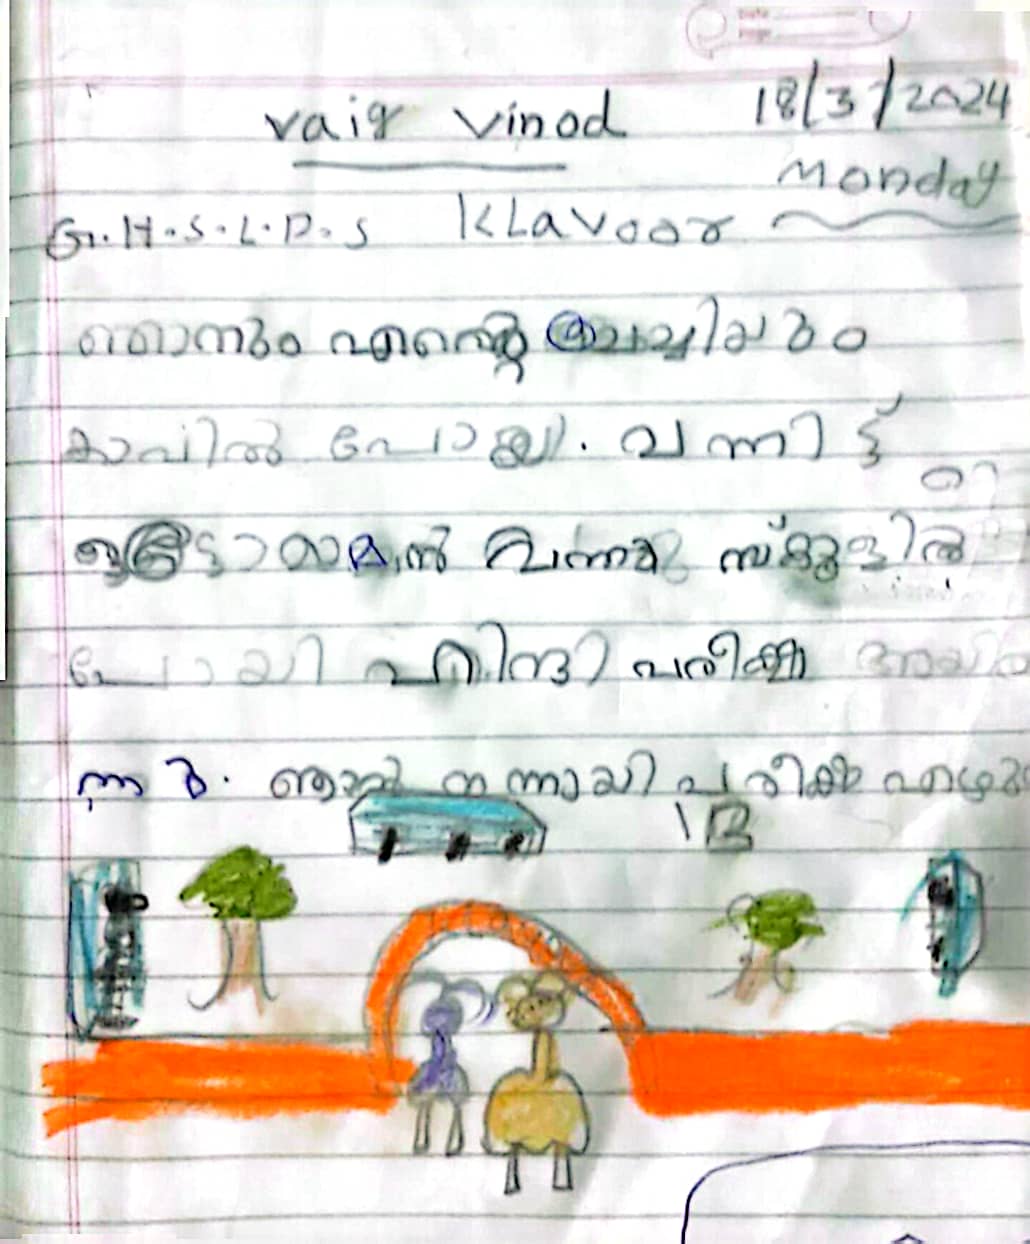 vaiga vinod 18/3/2024
Monday
G.H.S.L.P.S KLavoor
ഞാനും എന്റെ ചേച്ചിയും
കാവിൽ പോയി. വന്നിട്ട്
വന്നു സ്കൂളിൽ
പോയി ഹിന്ദി പരീക്ഷ ആയിരു
ന്നു. ഞാൻ നന്നായി പരീക്ഷ എഴുതി